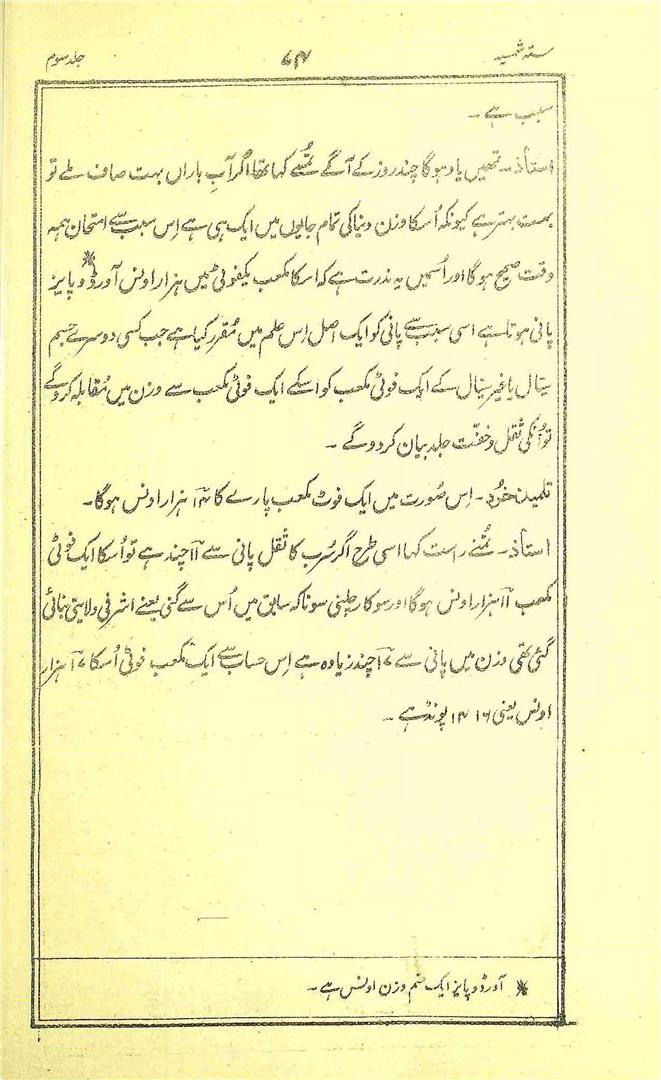 ستہ شمسیہ ۷۴ جلد سوم
سبب ہے ۔
استاذ ۔ تمھیں یاد ہوگا چند روز کے آگے تُمسے کہا تھا اگر آبِ باراں بہت صاف ملے تو
بہت بہتر ہے کیونکہ اُسکا وزن دنیا کی تمام جایوں میں ایک ہی ہے اِس سبب سے امتحان ہمہ
وقت صحیح ہوگا اور اُسمیں یہ ندرت ہے کہ اسکا مکعب یکفوٹی ٹھیں ہزار اونس آورڈوپایز *
پانی ہوتا ہے اسی سبب سے پانی کو ایک اصل اِس علم میں مُقرر کیا ہے جب کسی دوسرے جسم
سیّال یا غیر سیّال کے ایک فوٹی مکعب کو اسکے ایک فوٹی مکعب سے وزن میں مُقابلہ کروگے
تو اُنکی ثقل و خفت جلد بیان کردوگے ۔
تلمیذ خُرد ۔ اِس صُورت میں ایک فوٹ مکعب پارے کا ۱۴ ہزار اونس ہوگا۔
استاذ ۔ تُمنے راست کہا اسی طرح اگر سُرب کا ثقل پانی سے ۱۱ چند ہے تو اُسکا ایک فوٹی
مکعب ۱۱ ہزار اونس ہوگا اور سونا کہ سابق میں اُس سے گنی یعنے اشرفی ولایتی بنائی
گئی تھی وزن میں پانی سے ۱۷ چند زیادہ ہے اِس حساب سے ایک مکعب فوٹی اُسکا ۱۷ ہزار
اونس یعنی پونڈ ہے ۔
* آورڈوپایز ایک قسم وزن اونس ہے ۔